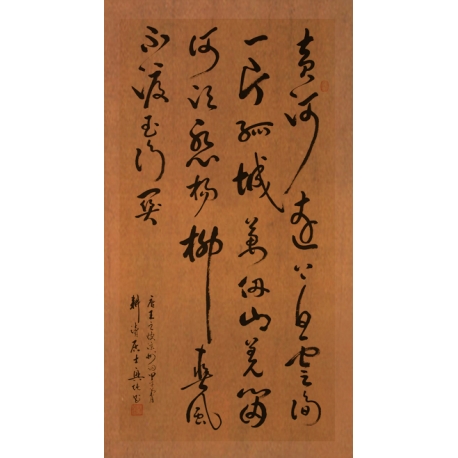 黄河遠上白雲間
一片孤城萬仞山羌笛
何須怨楊柳春風
不渡玉門關
唐王之渙涼州詞
居士